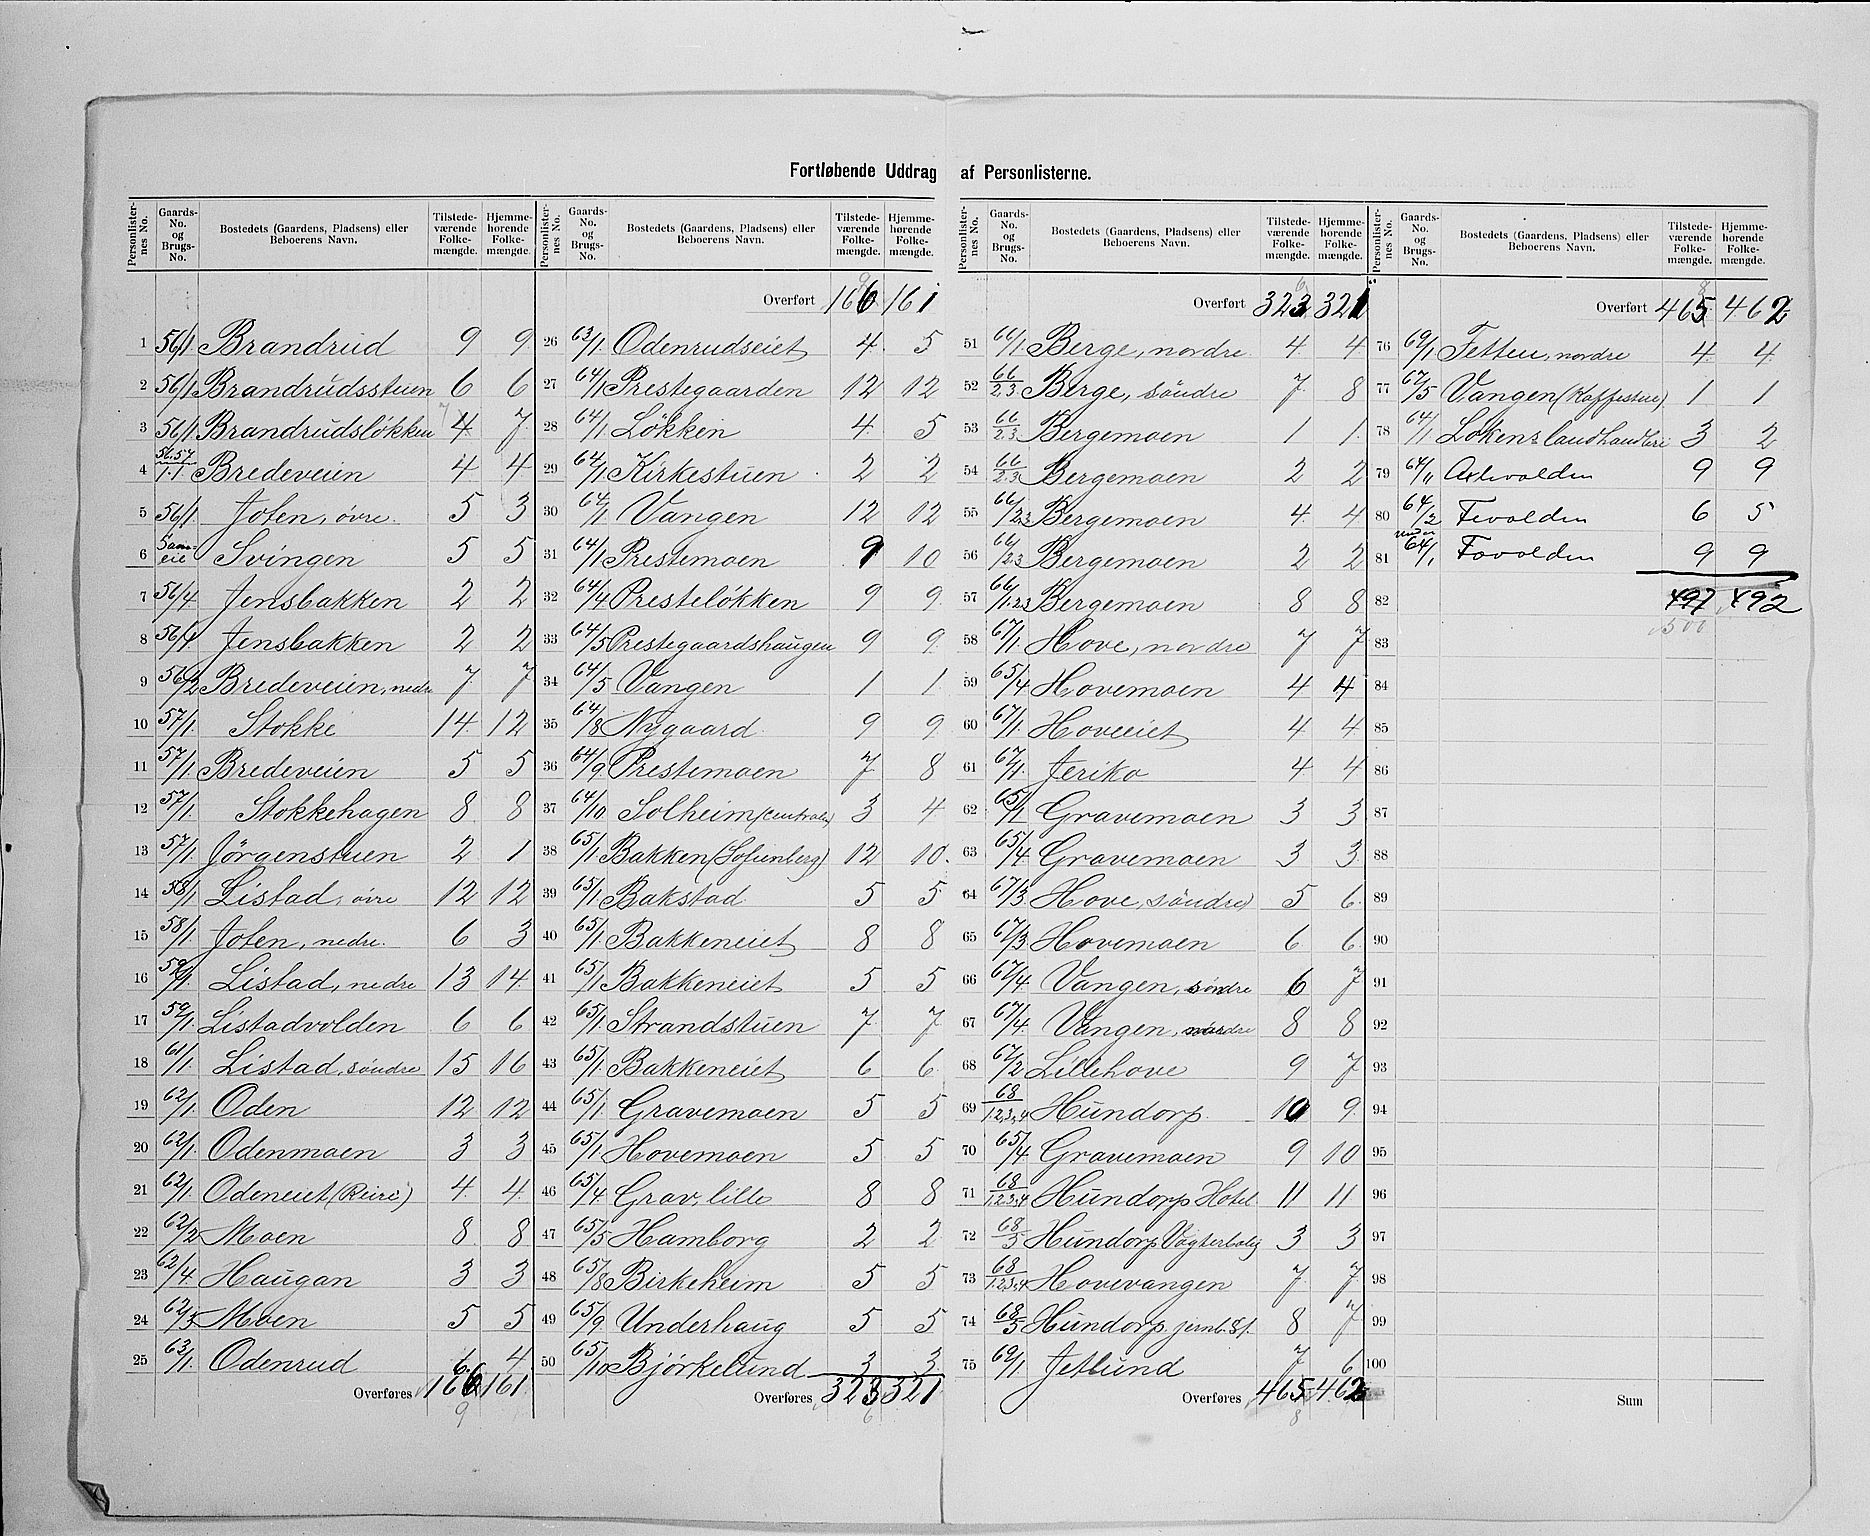 Fortløbende Uddrag af Personlisterne.
Personlister-nes No. Gaards-No. og Brugs-No. Bostedets (Gaardens, Pladsens) eller Beboerens Navn. Tilstede-værende Folke-mængde. Hjemme-hørende Folke-mængde.
1 56/1 Brandrud 9 9
2 56/1 Brandrudsstuen 6 6
3 56/1 Brandrudsløkken 4 7 7
4 56.57/1.1 Bredeveien 4 4
5 56/1 Joten, øvre. 5 3
6 Sam-eie Svingen 5 5
7 56/4 Jensbakken 2 2
8 56/1 Jensbakken 2 2
9 56/2 Bredeveien, nedre 7 7
10 57/1 Stokke 14 12
11 57/1 Bredeveien 5 5
12 57/1 Stokkehagen 8 8
13 57/1 Jørgenstuen 2 1
14 58/1 Listad, øvre 12 12
15 58/1 Joten, nedre. 6 3
16 59/1 Listad, nedre 13 14
17 59/1 Listadvolden 6 6
18 61/1 Listad, søndre 15 16
19 62/1 Oden 12 12
20 62/1 Odenmoen 3 3
21 62/1 Odeneiet (Reire) 4 4
22 62/2 Moen 8 8
23 62/4 Haugan 3 3
24 62/5 Moen 5 5
25 63/1 Odenrud 6 4
Overføres 166 161
9
Personlister-nes No. Gaards-No. og Brugs-No. Bostedets (Gaardens, Pladsens) eller Beboerens Navn. Tilstede-værende Folke-mængde. Hjemme-hørende Folke-mængde.
9
Overført 166 161
26 63/1 Odenrudseiet 4 5
27 64/1 Prestegaarden 12 12
28 64/1 Løkken 4 5
29 64/1 Kirkestuen 2 2
30 64/1 Vangen 12 12
31 64/1 Prestemoen 9 10
32 64/4 Presteløkken 9 9
33 64/5 Prestegaardshaugen 9 9
34 64/5 Vangen 1 1
35 64/8 Nygaard 9 9
36 64/9 Prestemoen 7 8
37 64/10 Solheim (centralen) 3 4
38 65/1 Bakken (Sofienberg) 12 10
39 65/1 Bakstad 5 5
40 65/1 Bakkeneiet 8 8
41 65/1 Bakkeneiet 5 5
42 65/1 Strandstuen 7 7
43 65/1 Bakkeneiet 6 6
44 65/1 Gravemoen 5 5
45 65/1 Hovemoen 5 5
46 65/4 Grav, lille 8 8
47 65/5 Hamborg 2 2
48 65/8 Birkeheim 5 5
49 65/9 Underhaug 5 5
50 65/10 Bjørkelund 3 3
Overføres 323 321
6
Personlister-nes No. Gaards-No. og Brugs-No. Bostedets (Gaardens, Pladsens) eller Beboerens Navn. Tilstede-værende Folke-mængde. Hjemme-hørende Folke-mængde.
6
Overført 323 321
51 66/1 Berge, nordre 4 4
52 66/2.3 Berge, søndre 7 8
53 66/2.3 Bergemoen 1 1
54 66/2.3 Bergemoen 2 2
55 66/2.3 Bergemoen 4 4
56 66/2.3 Bergemoen 2 2
57 66/1.2.3 Bergemoen 8 8
58 67/1 Hove, nordre 7 7
59 65/4 Hovemoen 4 4
60 67/1 Hoveeiet 4 4
61 67/1 Jeriko 4 4
62 65/1 Gravemoen 3 3
63 65/4 Gravemoen 3 3
64 67/3 Hove, søndre 5 6
65 67/3 Hovemoen 6 6
66 67/4 Vangen, søndre 6 7
67 67/4 Vangen, nordre 8 8
68 67/2 Lillehove 9 7
69 68/1.2.3.4 Hundorp 10 9
70 65/4 Gravemoen 9 10
71 68/1.2.3.4 Hundorp Hotel 11 11
72 68/5 Hundorp Vogterbolig 3 3
73 68/1.2.3.4 Hovevangen 7 7
74 68/5 Hundorp jernb. St. 8 7
75 69/1 Jetlund 7 6
Overføres 465 462
8
Personlister-nes No. Gaards-No. og Brugs-No. Bostedets (Gaardens, Pladsens) eller Beboerens Navn. Tilstede-værende Folke-mængde. Hjemme-hørende Folke-mængde.
8
Overført 465 462
76 69/1 Fetten, nordre 4 4
77 67/5 Vangen (Kaffestue) 1 1
78 64/1 Løkens landhandleri 3 2
79 64/11 9 9
80 64/2 6 5
81 64/1 9 9
82 497 492
500
83
84
85
86
87
88
89
90
91
92
93
94
95
96
97
98
99
100
Sum